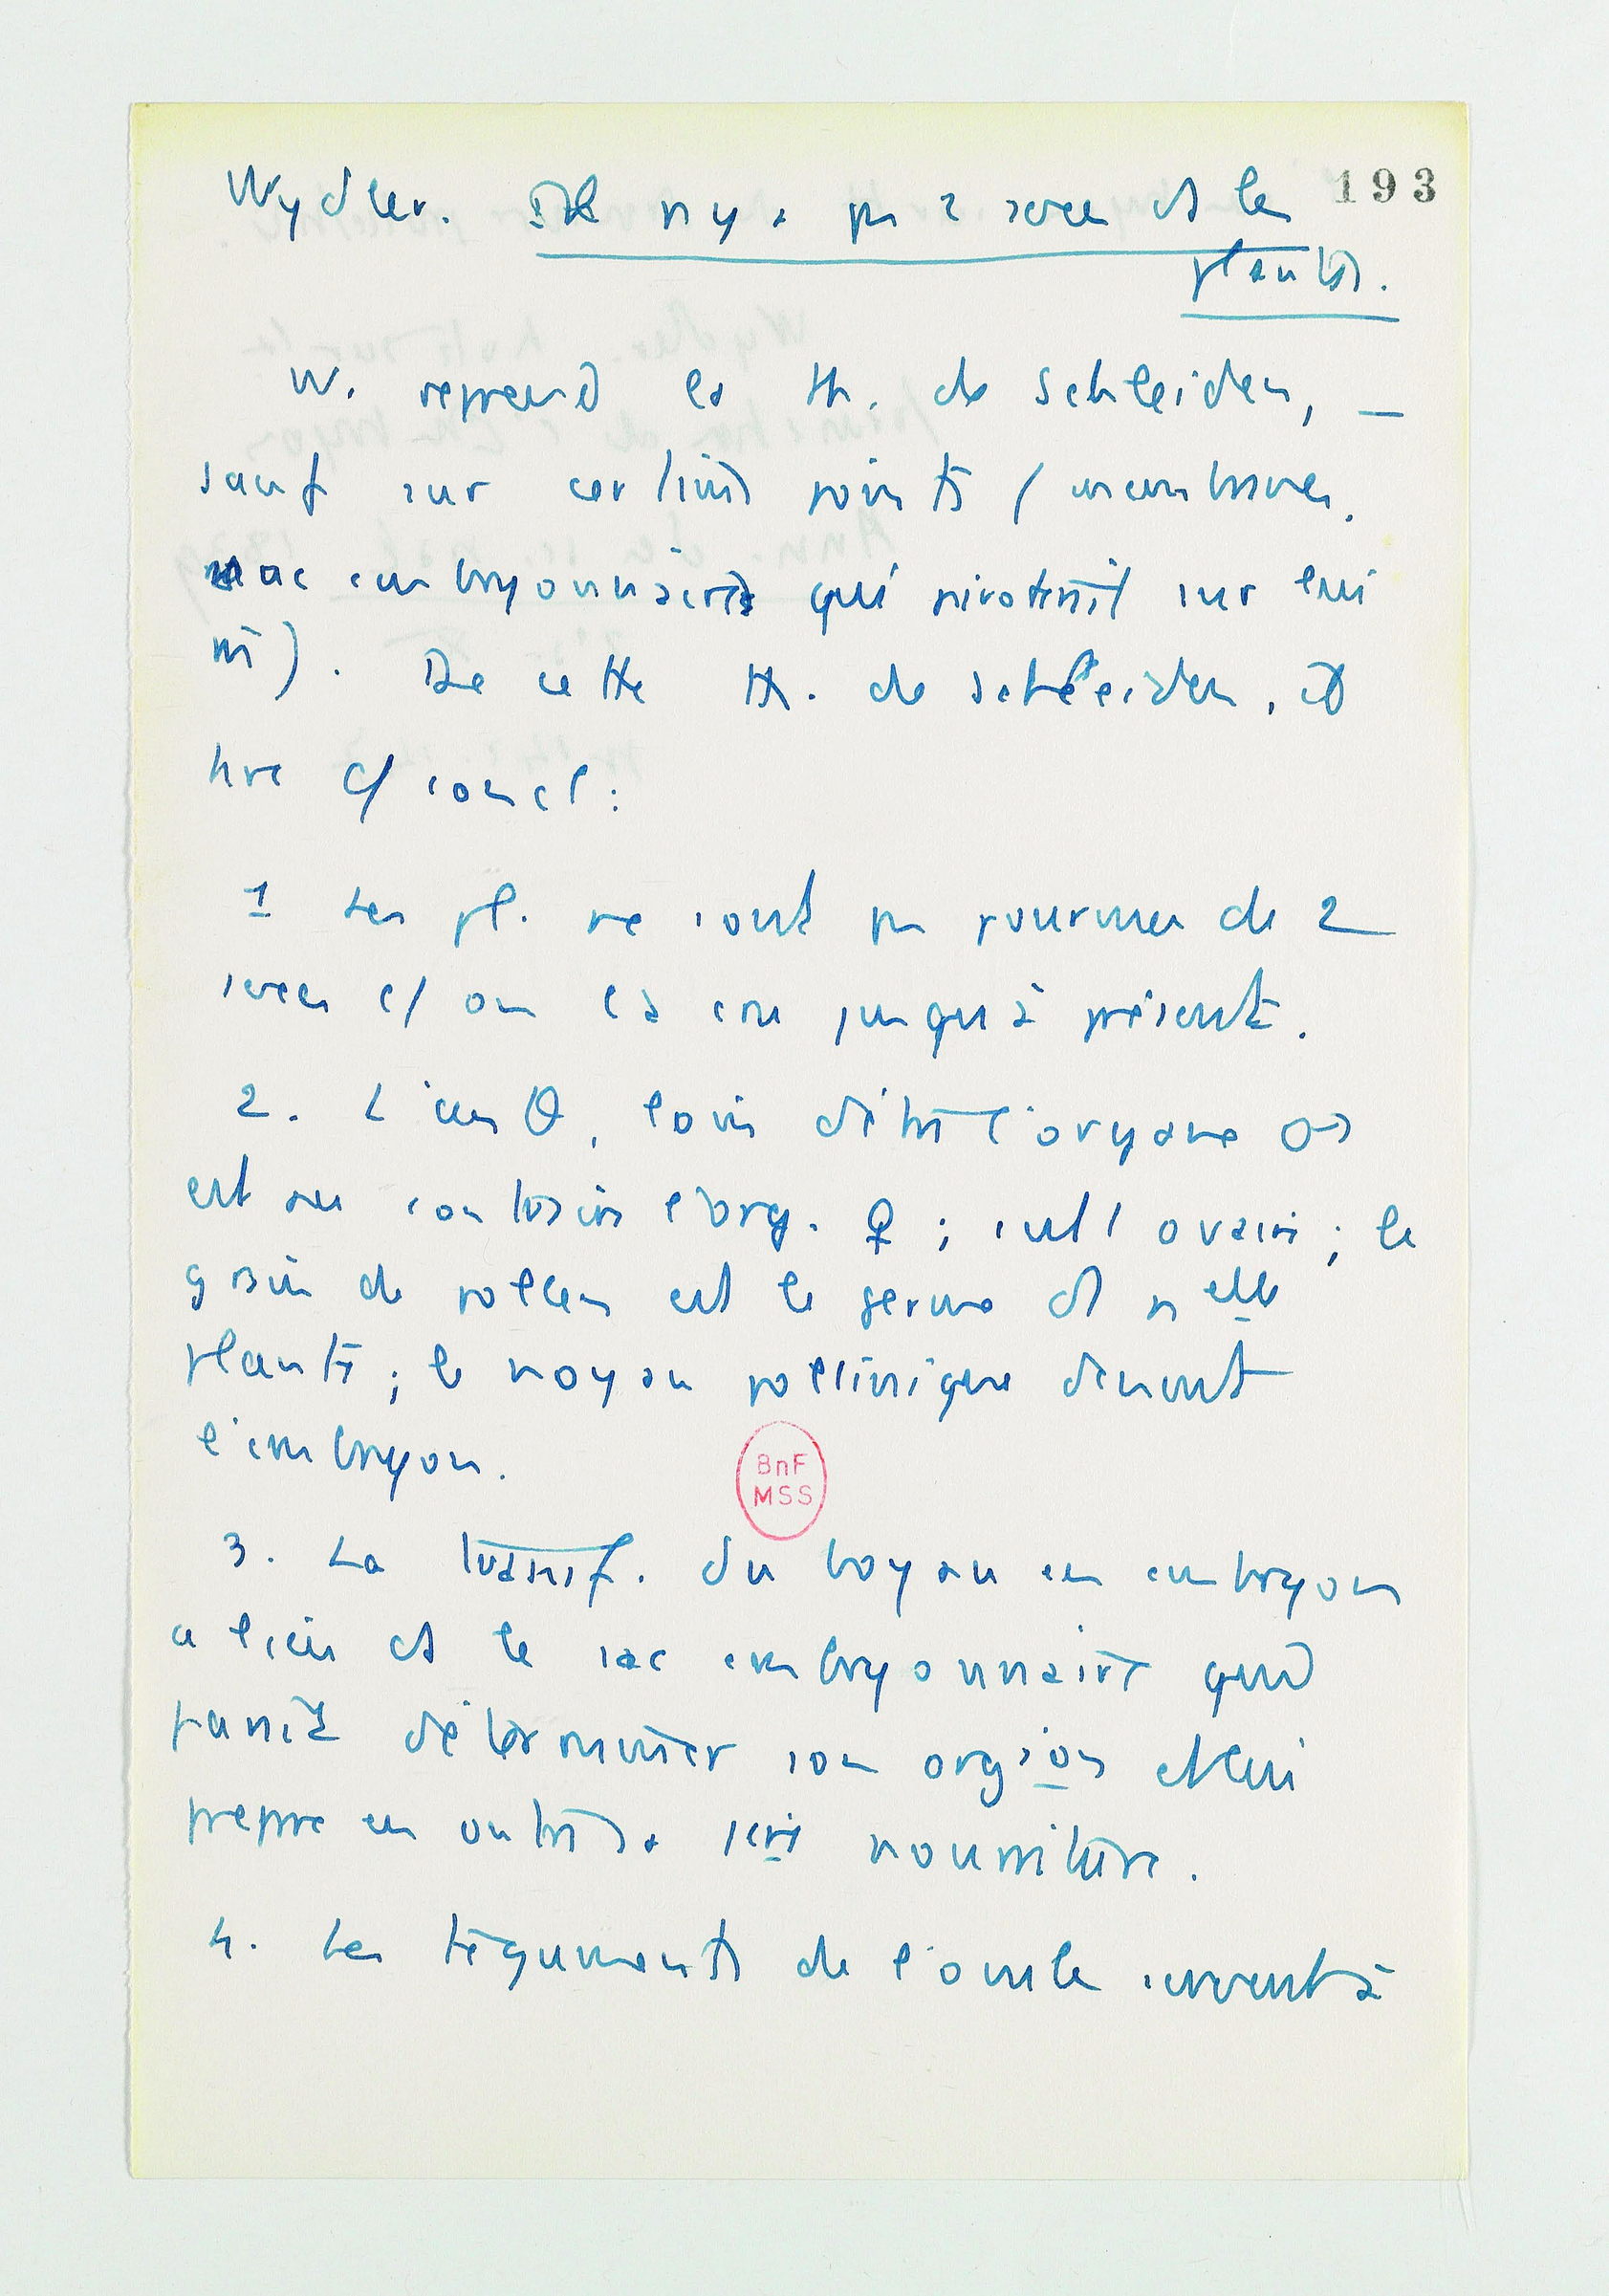 193
Wydler. Il n'y a pas 2 sexes ds les
plantes.
W. reprend la th. de Schleiden, –
sauf sur certains points (membranes.
sac embryonnaire qui sur lui
m̄). De cette th. de Schleiden, il
tire c/ concl :
1 Les pl. ne sont pas pourvues de 2
sexes c/ on l'a cru jusqu'à présent.
2. L'anth, loin d'être l'organe ♂
est au contraire l'org. ♀ ; c'est l'ovaire ; le
grain de pollen est le germe d' nelle
plante ; le boyau pollinique devient
l'embryon.
BnF
MSS
3. La transf. du boyau en embryon
a lieu ds le sac embryonnaire qui
paraît déterminer son orgion et lui
prépare en outre sa 1ère nourriture.
4. Les téguments de l'ovule servent à